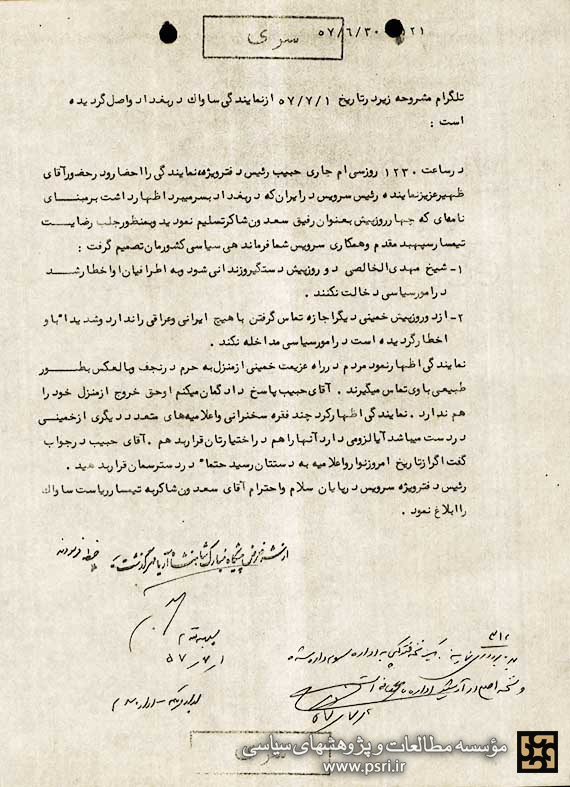 سری
۵۷/۶/۳۰
۲۱
تلگرام مشروحه زیر در تاریخ ۵۷/۷/۱ از نمایندگی ساواک در بغداد واصل گردیده
است :
در ساعت ۱۲۳۰ روز سی ام جاری حبیب رئیس دفتر ویژه نمایندگی را احضار و در حضور آقای
ظهیر عزیز نماینده رئیس سرویس در ایران که در بغداد بسر میبرد اظهار داشت بر مبنای
نامه‌ای که چهار روز پیش بعنوان رفیق سعدون شاکر تسلیم نمودید و بمنظور جلب رضایت
تیمسار سپهبد مقدم و همکاری سرویس شما فرماندهی سیاسی کشورمان تصمیم گرفت :
۱- شیخ مهدی الخالصی دو روز پیش دستگیر و زندانی شود و به اطرافیان او اخطار شد
در امور سیاسی دخالت نکنند .
۲- از دو روز پیش خمینی دیگر اجازه تماس گرفتن با هیچ ایرانی و عراقی را ندارد و شدیداً باو
اخطار گردیده است در امور سیاسی مداخله نکند .
نمایندگی اظهار نمود مردم در راه عزیمت خمینی از منزل به حرم در نجف و بالعکس بطور
طبیعی با وی تماس میگیرند . آقای حبیب پاسخ داد گمان میکنم او حق خروج از منزل خود را
هم ندارد . نمایندگی اظهار کرد چند فقره سخنرانی و اعلامیه‌های متعدد دیگری از خمینی
در دست میباشد آیا لزومی دارد آنها را هم در اختیارتان قرار بدهم . آقای حبیب در جواب
گفت اگر از تاریخ امروز نوار و اعلامیه به دستتان رسید حتماً در دسترسمان قرار بدهید .
رئیس دفتر ویژه سرویس در پایان سلام و احترام آقای سعدون شاکر به تیمسار ریاست ساواک
را ابلاغ نمود .
از شرفعرض پیشگاه مبارک شاهنشاه آریامهر گذشت ملاحظه فرمودند
سپهبد مقدم
۵۷
سری
مؤسسه مطالعات و پژوهشهای سیاسی
www.psri.ir